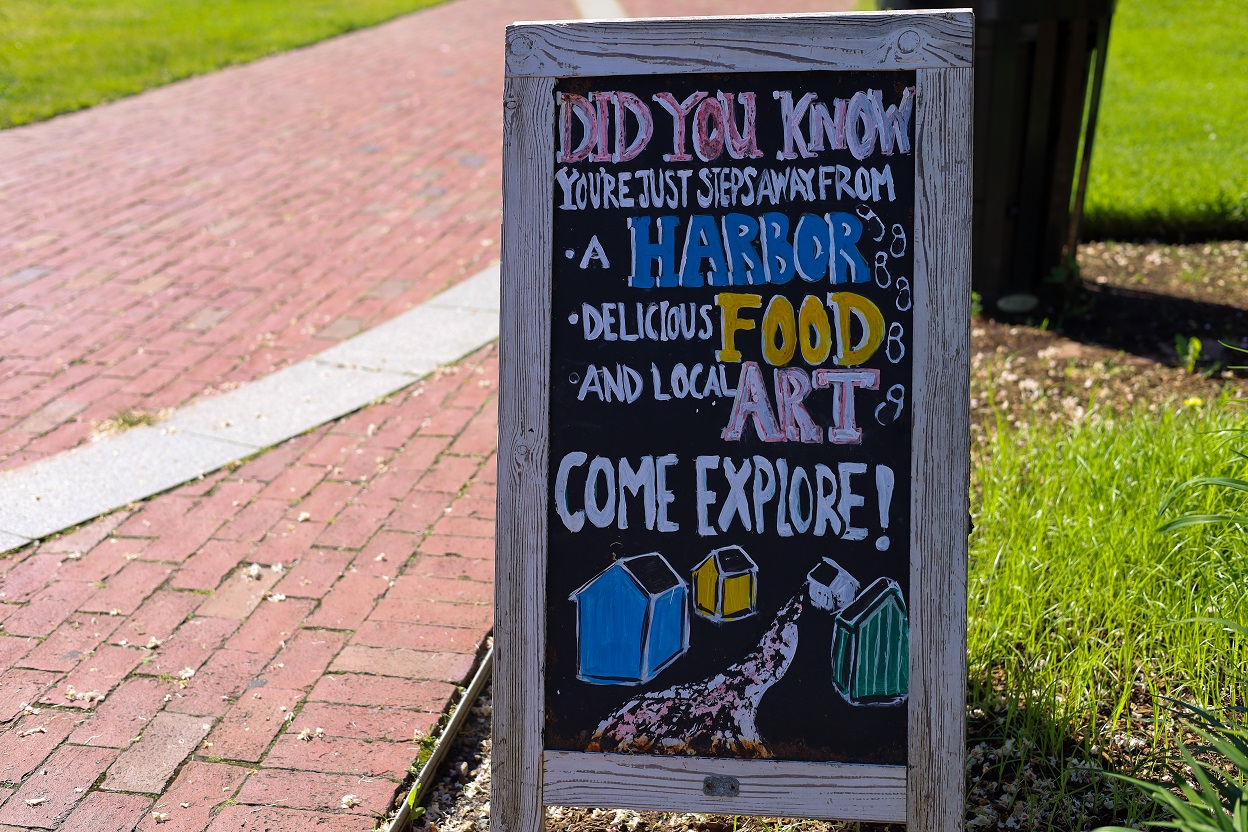 DID YOU KNOW
YOU'RE JUST STEPS AWAY FROM
• A HARBOR
• DELICIOUS FOOD
• AND LOCAL ART
COME EXPLORE!